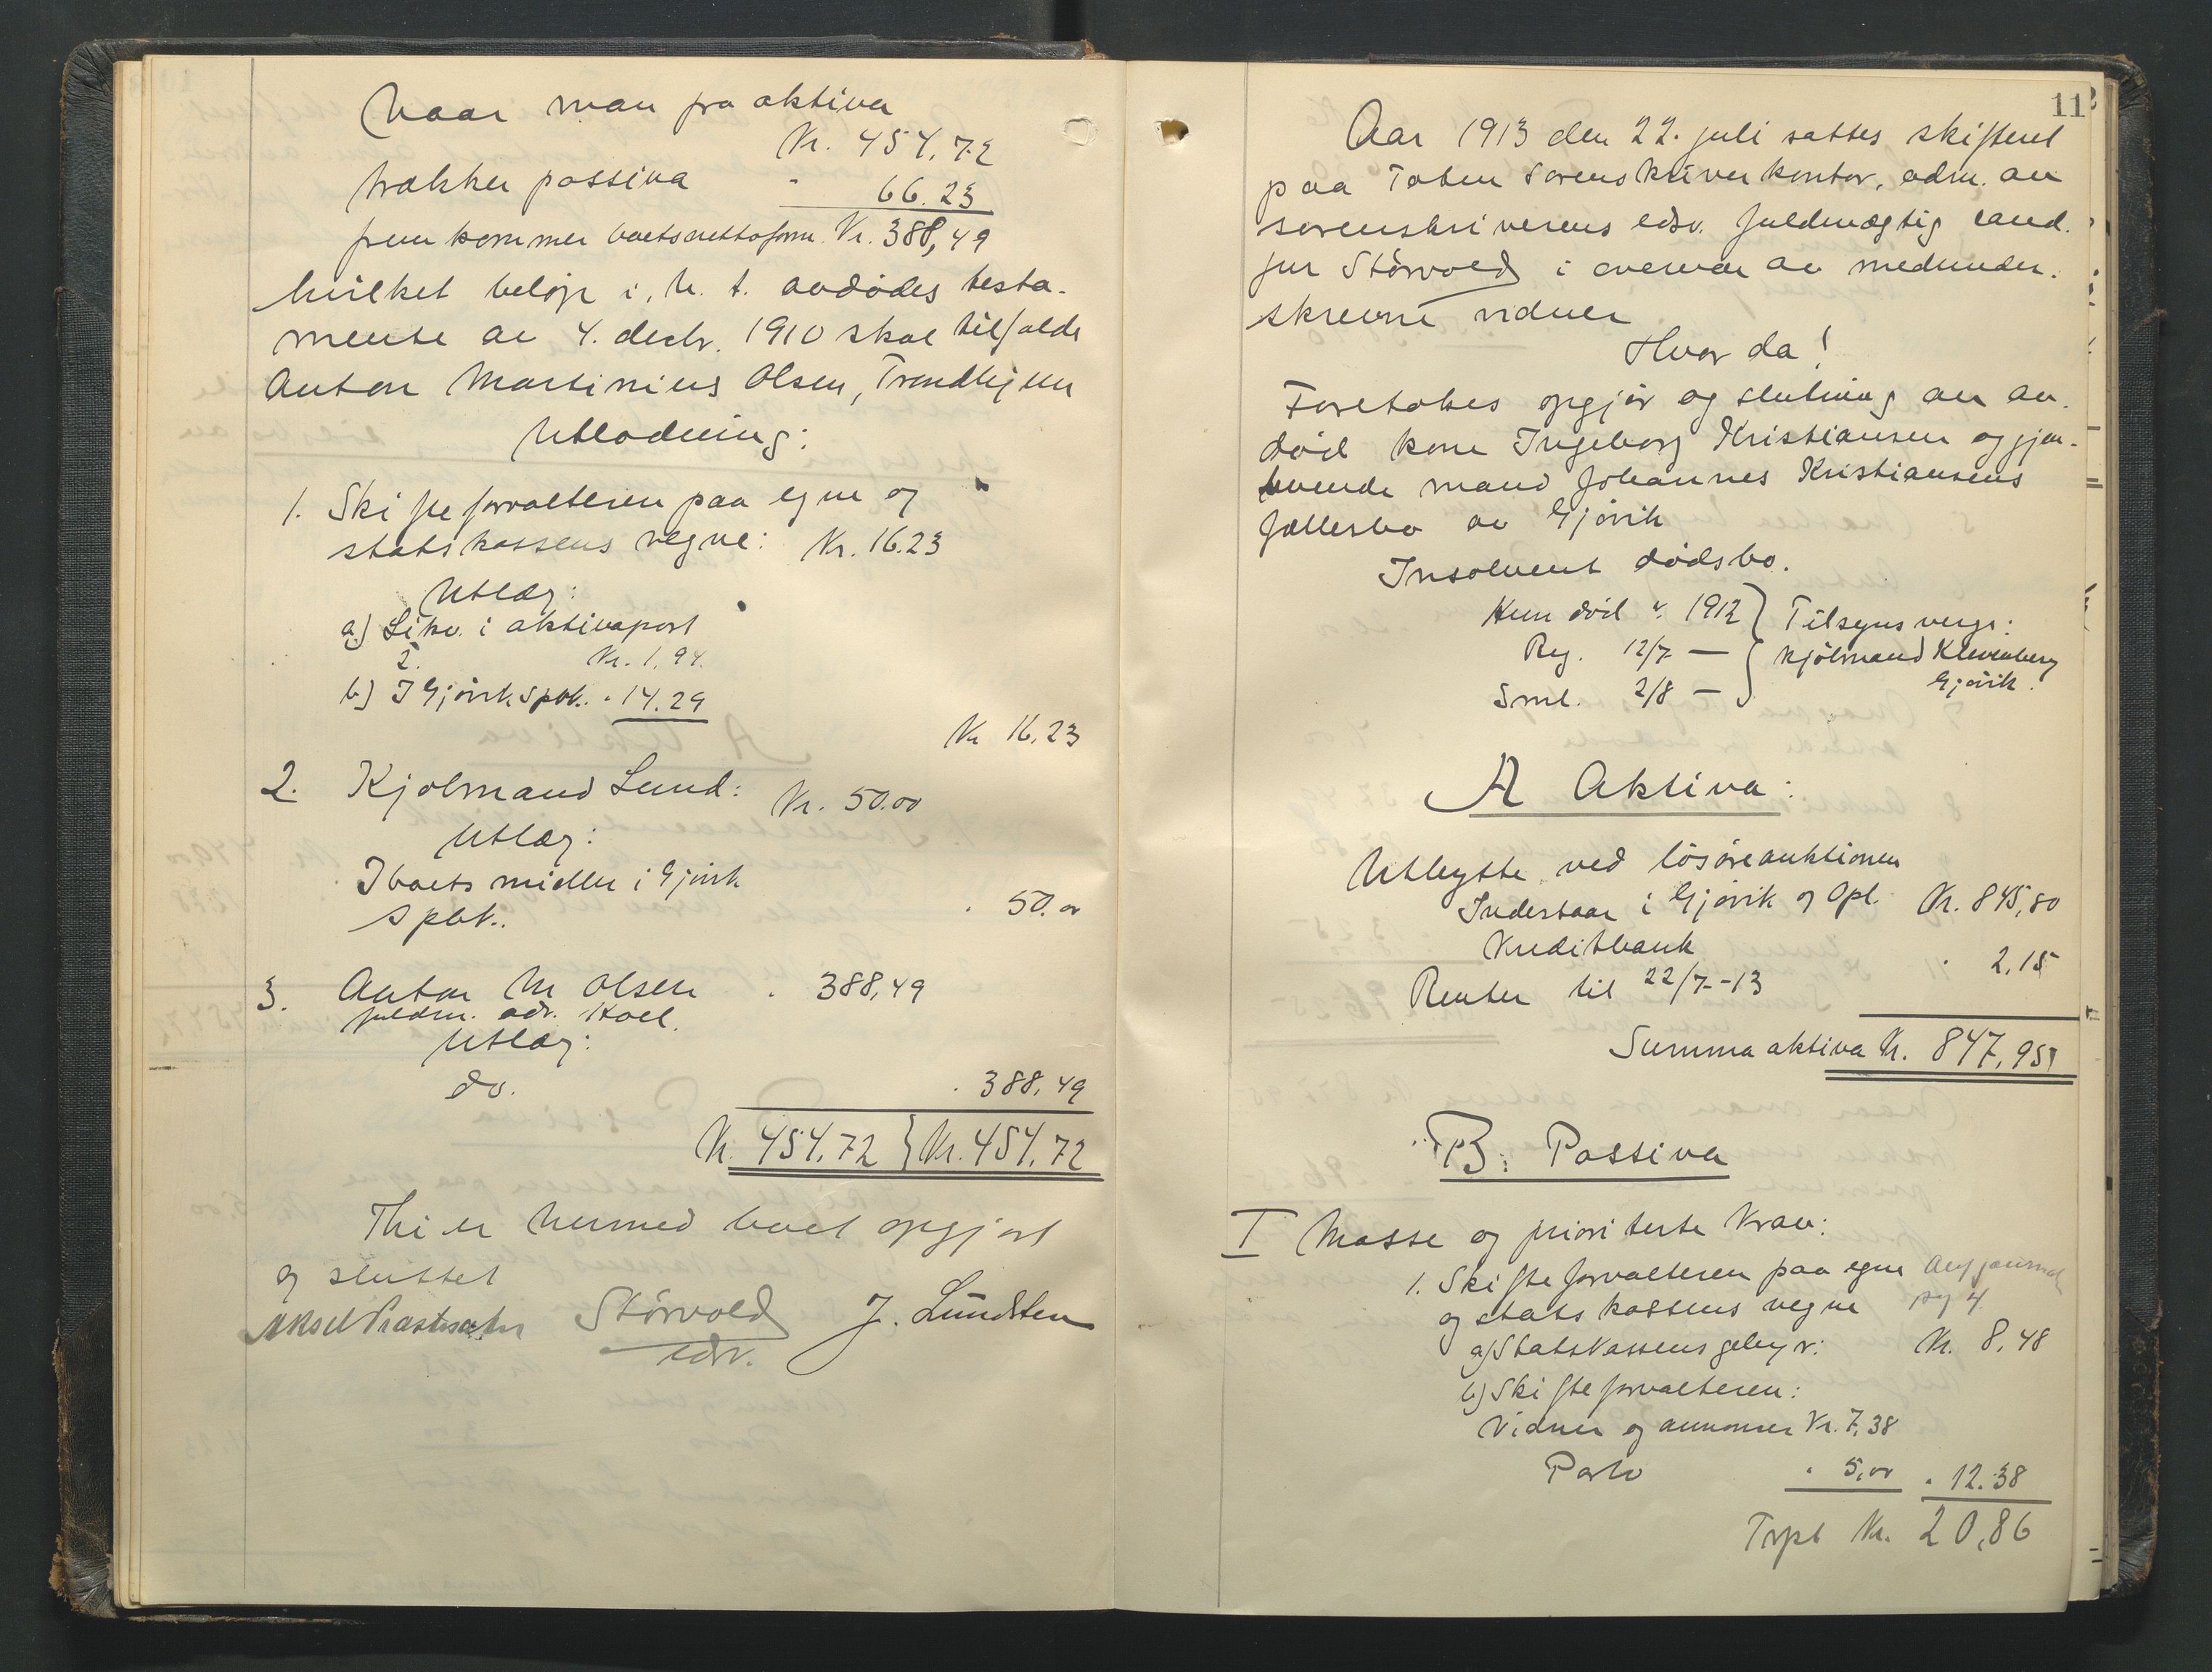 Naar man fra aktiva
Kr. 454,72
trækker passiva " 66.23
fremkommer boets nettoform. Kr. 388,49
hvilket beløp i. h. t. avdødes testa-
mente av 4. decbr. 1910 skal tilfalde
Anton Martinius Olsen, Trondhjem
Utlodning:
1. Skifteforvalteren paa egne og
statskassens vegne: Kr. 16.23
Utlæg:
a) Likv. i aktivapost
2. Kr. 1,94.
b) I Gjøvik Spbk. " 14.29
Kr 16,23
2. Kjølmand Lund: Kr. 50.00
Utlæg:
I boets midler i Gjøvik
Spbk.. " 50.00
3. Anton M Olsen " 388,49
fuldm. adv. Hoel.
Utlæg:
do. " 388,49
Kr. 454,72 } Kr. 454,72
Thi er hermed boet opgjort
og sluttet
Aksel Størvold J. Lundsten
edsv.
11
Aar 1913 den 22. juli sattes skifteret
paa Toten Sorenskriverkontor, adm. av
sorenskriverens edsv. fuldmægtig cand.
jur Størvold i overvær av medunder-
skrevne vidner
Hvor da!
Foretokes opgjør og slutning av av-
død kone Ingeborg Kristiansen og gjen-
levende mand Johannes Kristiansens
fællesbo av Gjøvik
Insolvent dødsbo.
Hun død 1912 } Tilsynsverge:
Reg. 12/7 — Kjølmand Klevenberg
Sml. 2/8 — Gjøvik.
A Aktiva:
Utbytte ved løsøreauktionen
Indestaar i Gjøvik og Opl. Kr. 845,80
Kreditbank
Renter til 22/7-13 " 2,15
Summa aktiva Kr. 847,95
B: Passiva
I Masse og prioriterte Krav:
1. Skifteforvalteren paa egne
og statskassens vegne pg 4
a) Statskassens gebyr: Kr. 8,48
b) Skifteforvalteren:
Vidner og annonser Kr. 7,38
Porto " 5,00 " 12.38
Trpt Kr. 20,86